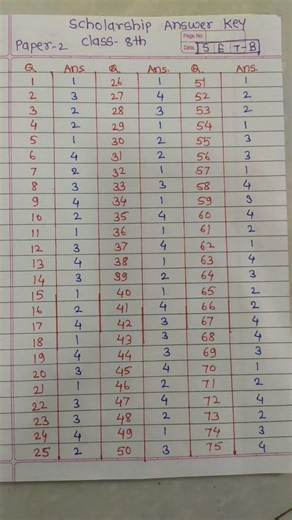 Scholarship Answer Key
Paper-2 Class- 8th
Page No:
Date: S E T-B
Q Ans Q Ans Q Ans
1 1 26 1 51 1
2 3 27 4 52 2
3 2 28 3 53 2
4 2 29 1 54 1
5 1 30 2 55 3
6 4 31 2 56 3
7 2 32 1 57 1
8 3 33 3 58 4
9 4 34 1 59 3
10 2 35 4 60 4
11 1 36 1 61 2
12 3 37 4 62 1
13 4 38 1 63 4
14 3 39 2 64 3
15 1 40 1 65 2
16 2 41 4 66 2
17 4 42 3 67 4
18 1 43 3 68 4
19 4 44 3 69 3
20 3 45 4 70 1
21 1 46 2 71 2
22 3 47 4 72 4
23 3 48 2 73 2
24 4 49 1 74 3
25 2 50 3 75 4